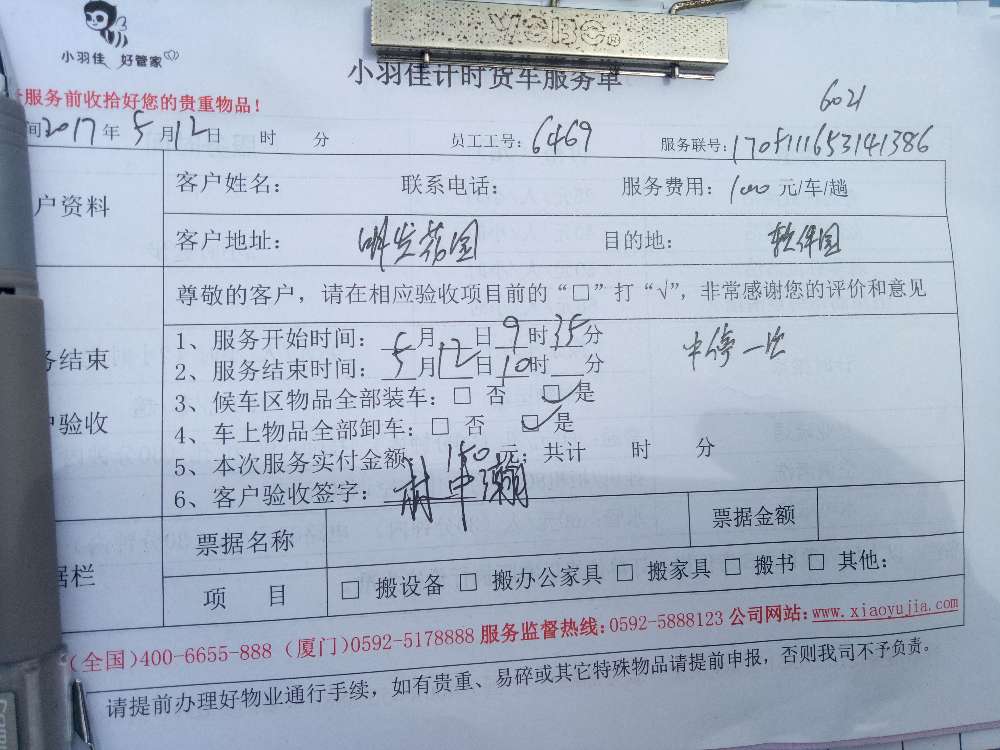 小羽佳 好管家
小羽佳计时货车服务单
服务前收拾好您的贵重物品！
6021
间2017年5月12日 时 分 员工工号：6469 服务联号：1705111653141386
户资料
客户姓名： 联系电话： 服务费用：100元/车/趟
客户地址：明发花园 目的地：软件园
务结束
户验收
尊敬的客户，请在相应验收项目前的“□”打“√”，非常感谢您的评价和意见
1、服务开始时间：5月12日9时35分
中停一次
2、服务结束时间：5月12日10时___分
3、候车区物品全部装车：□ 否 ☑是
4、车上物品全部卸车：□ 否 ☑是
5、本次服务实付金额：150元；共计 时 分
6、客户验收签字：林中瀚
据栏
票据名称 票据金额
项 目 □ 搬设备 □ 搬办公家具 □ 搬家具 □ 搬书 □ 其他：
(全国)400-6655-888 (厦门)0592-5178888 服务监督热线：0592-5888123 公司网站：www.xiaoyujia.com
请提前办理好物业通行手续，如有贵重、易碎或其它特殊物品请提前申报，否则我司不予负责。